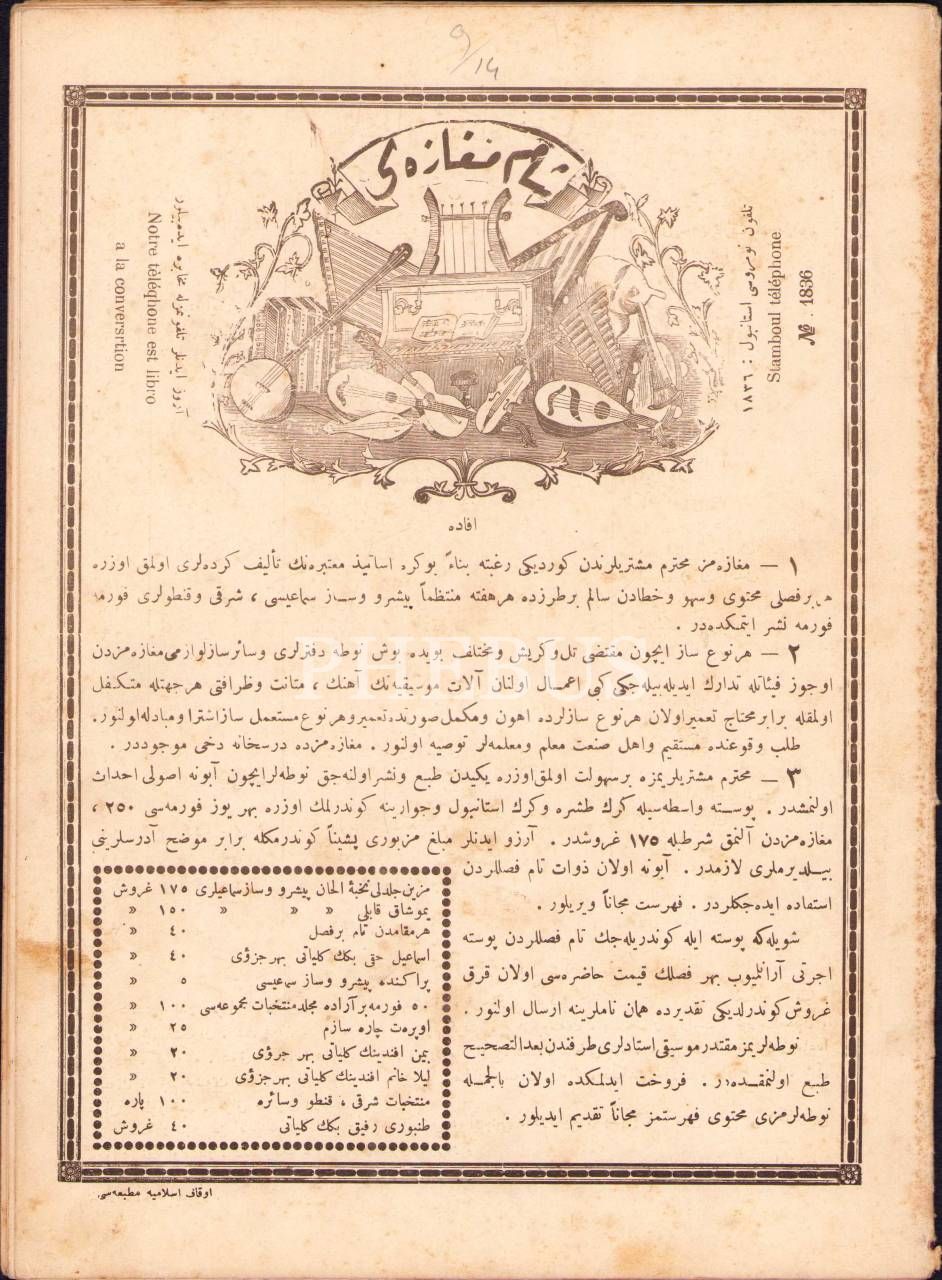 9/14
شام مغازه‌سی
تلفون نومروسی استانبول : ١٨٣٦
Stamboul téléphone
№ . 1836
آرزو ایدنلر تلفونمزله مخابره ایده‌بیلور
Notre téléqhone est libro
a la conversrtion
افاده
١ — مغازه‌مز محترم مشتریلرندن كوردیكی رغبته بناءً بوكره اساتیذ معتبره‌نك تألیف كرده‌لری اولمق اوزره
هر برفصلی محتوی وسهو وخطادن سالم برطرزده هرهفته منتظماً پیشرو وساز سماعیسی ، شرقی وقنطولری فورمه
فورمه نشر ایتمكده‌در .
٢ — هرنوع ساز ایچون مقتضی تل وكریش ومختلف بویده بوش نوطه دفترلری وسائر سازلوازمی مغازه‌مزدن
اوجوز فیئاتله تدارك ایدیله‌بیله‌جكی كبی اعمال اولنان آلات موسیقیه‌نك آهنك ، متانت وظرافتی هرجهتله متكفل
اولمقله برابر محتاج تعمیر اولان هرنوع سازلرده اهون ومكمل صورتده تعمیر وهرنوع مستعمل ساز اشترا ومبادله اولنور.
طلب وقوعنده مستقیم واهل صنعت معلم ومعلمه‌لر توصیه اولنور . مغازه‌مزده درسخانه دخی موجوددر .
٣ — محترم مشتریلریمزه برسهولت اولمق اوزره یكیدن طبع ونشر اولنه‌جق نوطه‌لر ایچون آبونه اصولی احداث
اولنمشدر . پوسته واسطه‌سیله كرك طشره وكرك استانبول وجوارینه كوندرلمك اوزره بهر یوز فورمه‌سی ٢٥٠ ،
مغازه‌مزدن آلنمق شرطیله ١٧٥ غروشدر . آرزو ایدنلر مبلغ مزبوری پشیناً كوندرمكله برابر موضح آدرسلرینی
بیلدیرملری لازمدر . آبونه اولان ذوات تام فصللردن
استفاده ایده‌جكلردر . فهرست مجاناً ویریلور .
شویله‌كه پوسته ایله كوندریله‌جك تام فصللردن پوسته
اجرتی آرانلمیوب بهر فصلك قیمت حاضره‌سی اولان قرق
غروش كوندرلدیكی تقدیرده همان ناملرینه ارسال اولنور .
نوطه‌لریمز مقتدر موسیقی استادلری طرفندن بعدالتصحیح
طبع اولنمقده‌در . فروخت ایدلمكده اولان بالجمله
نوطه‌لرمزی محتوی فهرستمز مجاناً تقدیم ایدیلور .
مزین جلدلی نخبة الحان پیشرو وساز سماعیلری ١٧٥ غروش
یموشاق قابلی » » » ١٥٠ »
هرمقامدن تام برفصل ٤٠ »
اسماعیل حقی بكك كلیاتی بهر جزؤی ٤٠ »
پراكنده پیشرو وساز سماعیسی ٥ »
٥٠ فورمه برآراده مجلد منتخبات مجموعه‌سی ١٠٠ »
اوپره‌ت چاره سازم ٢٥ »
یمین افندینك كلیاتی بهر جزؤی ٢٠ »
لیلا خانم افندینك كلیاتی بهر جزؤی ٢٠ »
منتخبات شرقی ، قنطو وسائره ١٠٠ پاره
طنبوری رفیق بكك كلیاتی ٤٠ غروش
اوقاف اسلامیه مطبعه‌سی
PHEBUS